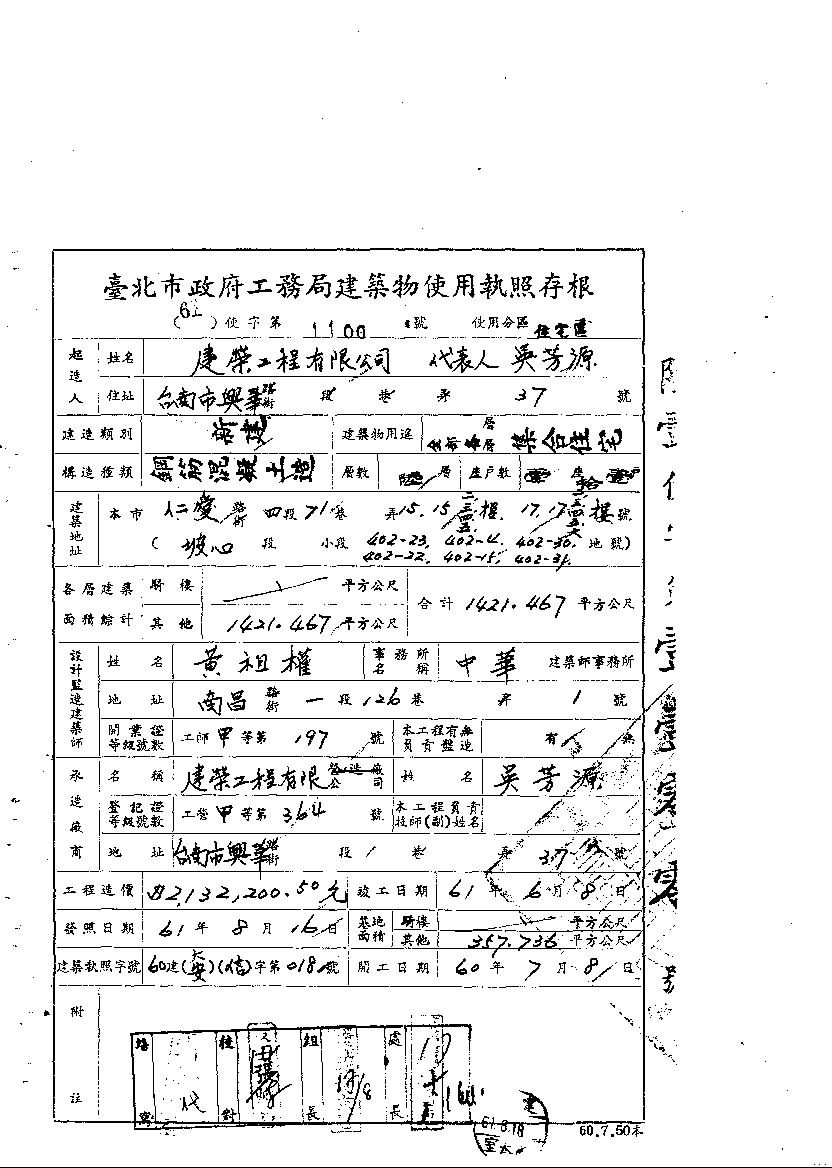 臺北市政府工務局建築物使用執照存根
(61)使字第1100號 使用分區 住宅區
起造人 姓名 建榮工程有限公司 代表人 吳芳源
住址 台南市興華路街 段 巷 弄 37 號
建造類別 新建 建築物用途 層 層 集合住宅
構造種類 鋼筋混凝土造 層數 陸 層 座戶數 座 拾 戶
建築地址 本市 仁愛路街四段71巷 弄15.15二三四五樓.17.17二三四五六樓號
(坡心 段 小段 402-23, 402-4, 402-30, 地號)
402-22, 402-15, 402-31,
各層建築面積總計 騎樓 平方公尺 合計1421.467平方公尺
其他 1421.467平方公尺
設計監造建築師 姓名 黃祖權 事務所名稱 中華 建築師事務所
地址 南昌路街一段126巷 弄 1 號
開業證等級號數 工師甲等第197號 本工程有無負責監造 有 無
承造廠商 名稱 建榮工程有限公司 營造廠 姓名 吳芳源
登記證等級號數 工營甲等第364號 本工程負責技師(副)姓名
地址 台南市興華路街 段 巷 弄 37 號
工程造價 $2,132,200.50元 竣工日期 61年6月8日
發照日期 61年8月16日 基地面積 騎樓 平方公尺
其他 357.736平方公尺
建築執照字號 60建(大安)(信)字第018號 開工日期 60年7月8日
附註
核對 組長 處長
代
61.8.18
60.7.50本